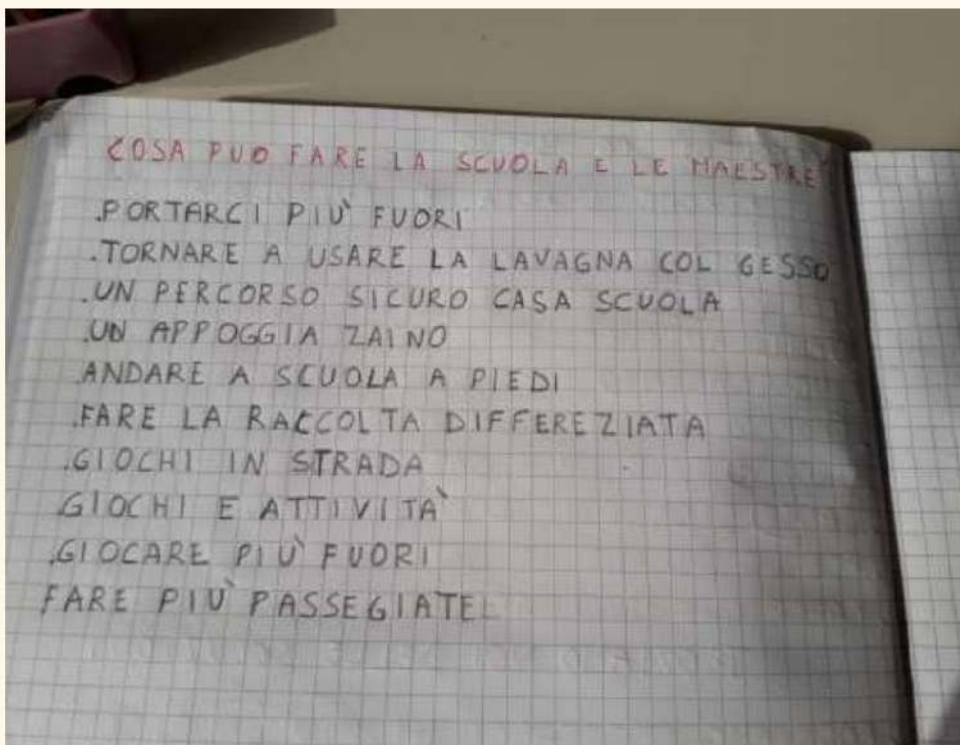 COSA PUO FARE LA SCUOLA E LE MAESTRE
.PORTARCI PIÙ FUORI
.TORNARE A USARE LA LAVAGNA COL GESSO
.UN PERCORSO SICURO CASA SCUOLA
.UN APPOGGIA ZAINO
.ANDARE A SCUOLA A PIEDI
.FARE LA RACCOLTA DIFFEREZIATA
.GIOCHI IN STRADA
GIOCHI E ATTIVITÀ
.GIOCARE PIÙ FUORI
FARE PIÙ PASSEGIATE